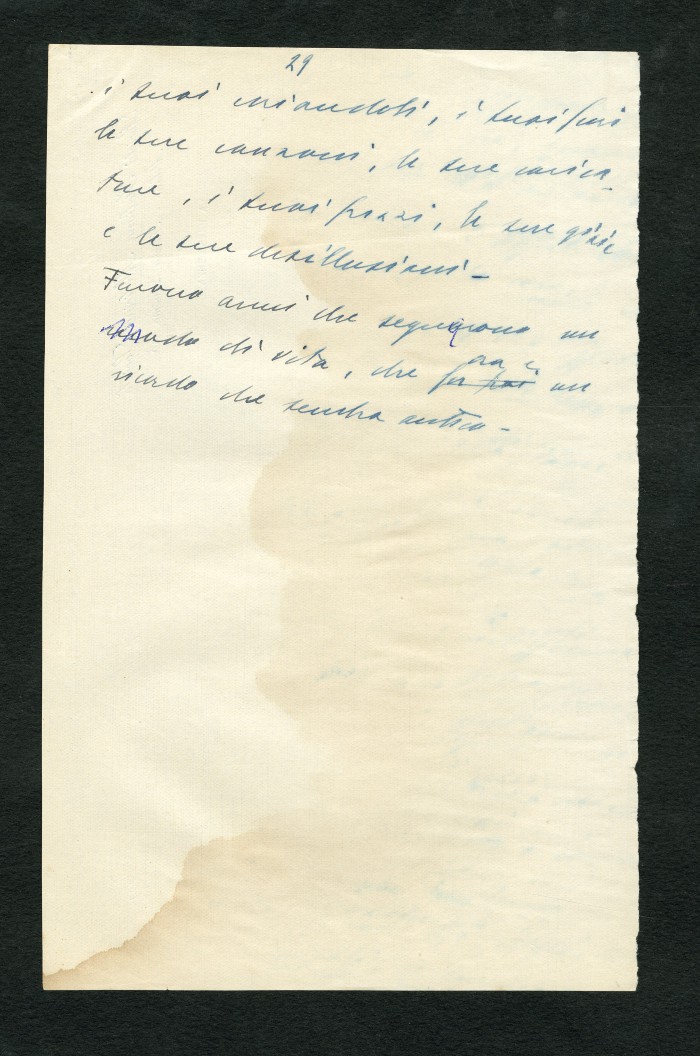 29
i tuoi coriandoli, i tuoi fiori
le tue canzoni, le tue carica-
ture, i tuoi frizzi, le tue gioie
e le tue desillusioni -
Furono anni che segnarono un
modo di vita, che ora è un
ricordo che sembra antico -